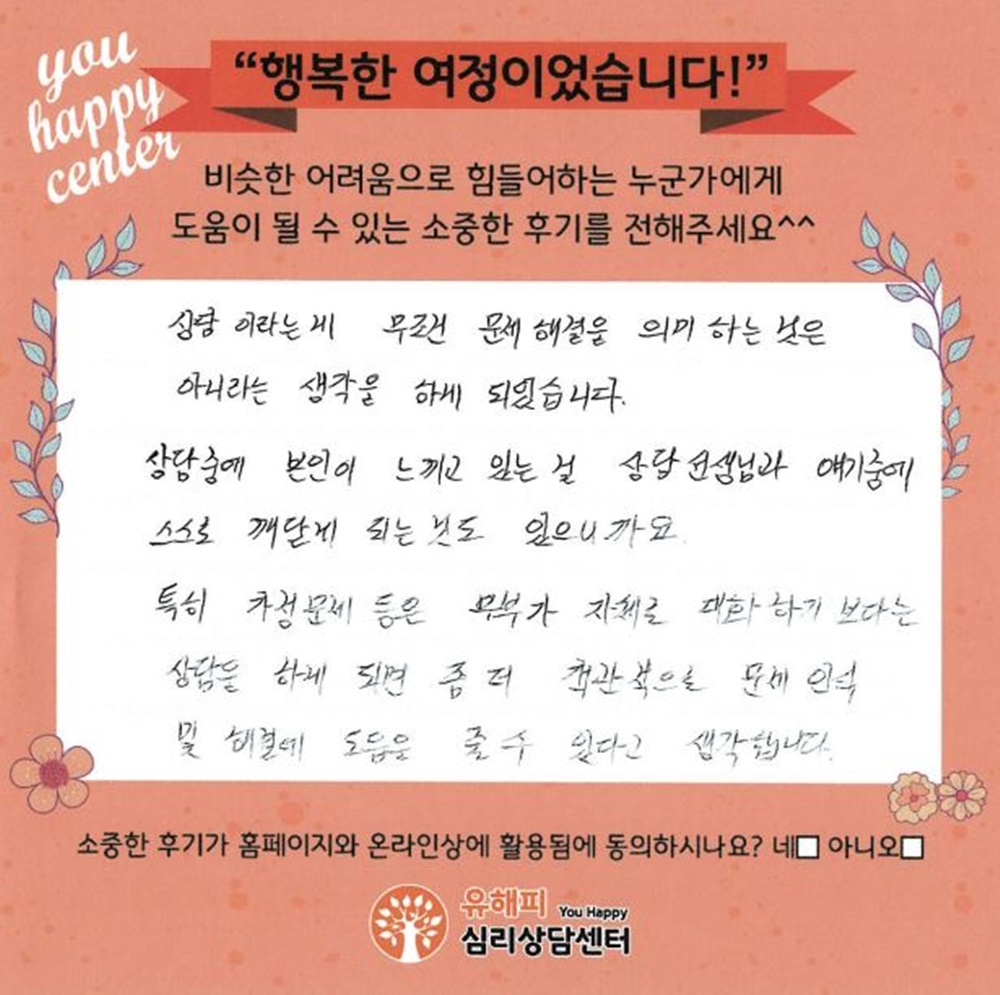 you
happy
center
“행복한 여정이었습니다!”
비슷한 어려움으로 힘들어하는 누군가에게
도움이 될 수 있는 소중한 후기를 전해주세요^^
상담 이라는게 무조건 문제 해결을 의미 하는 것은
아니라는 생각을 하게 되었습니다.
상담중에 본인이 느끼고 있는 걸 상담 선생님과 얘기중에
스스로 깨닫게 되는 것도 있으니까요.
특히 가정문제 등은 부부가 자체로 대화 하기 보다는
상담을 하게 되면 좀 더 객관적으로 문제 인식
및 해결에 도움을 줄 수 있다고 생각합니다.
소중한 후기가 홈페이지와 온라인상에 활용됨에 동의하시나요? 네□ 아니오□
유해피 You Happy
심리상담센터